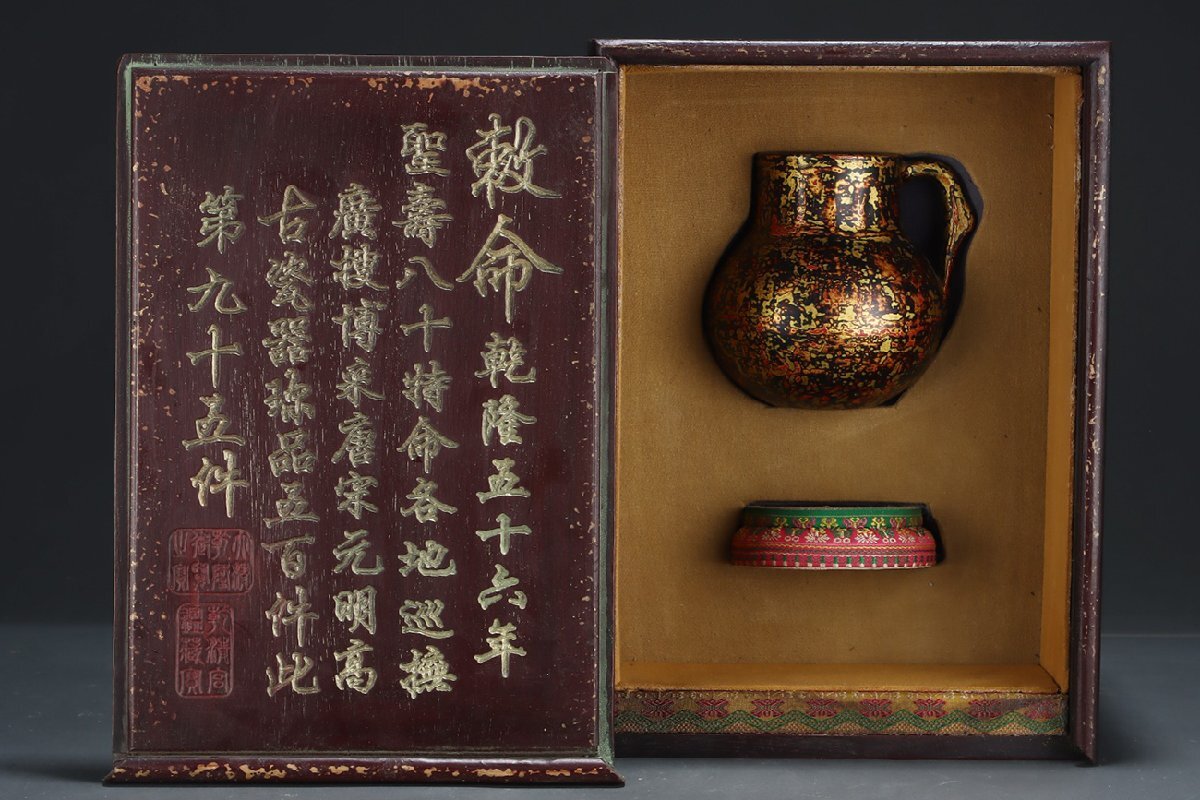 敕命乾隆五十六年
聖壽八十特命各地巡撫
廣搜博采唐宋元明高
古瓷器珎品五百件此
第九十五件
乾清宮